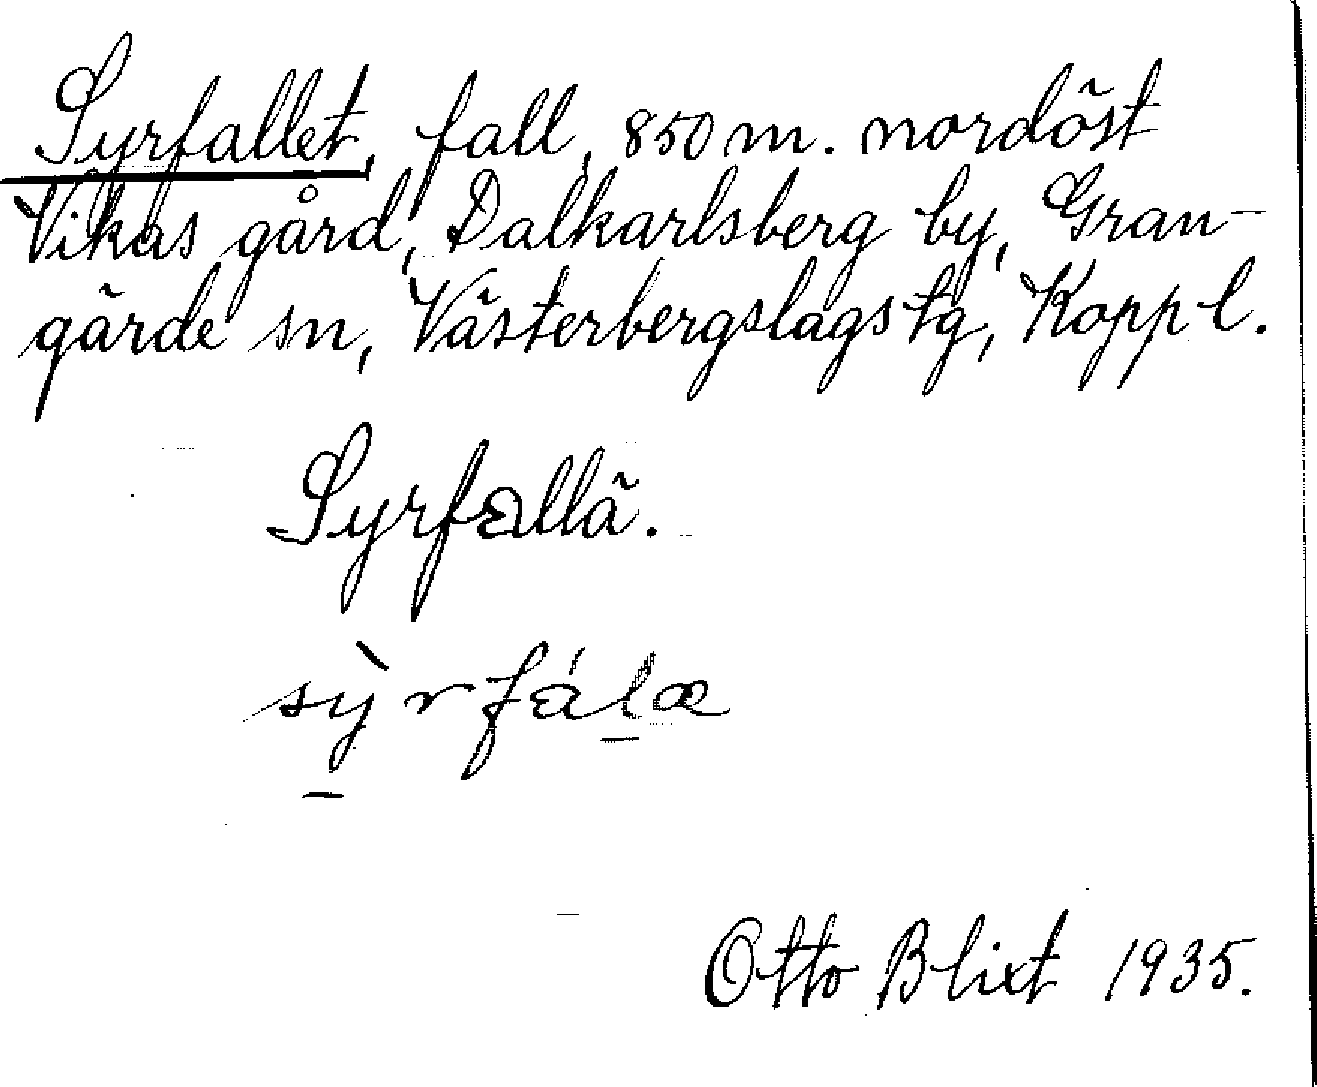 Syrfallet, fall, 850 m. nordöst
Vikas gård, Dalkarlsberg by, Gran-
gärde sn, Västerbergslags tg, Kopp l.
Syrfallä.
sỳrfálæ
Otto Blixt 1935.